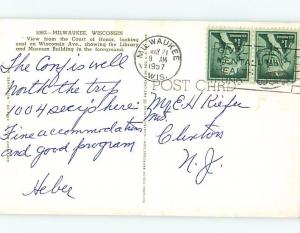 5062-MILWAUKEE, WISCONSIN
"View from the Court of Honor, looking
east on Wisconsin Ave., showing the Library and
Museum Building in the foreground."
MILWAUKEE
9 AM
1957
WIS.
POST CARD
The Conf. is well
worth the trip
1004 sec'ys here.
Fine accommodations
and good program
Heber
Mr. E H Kiefer
Clinton
N. J.